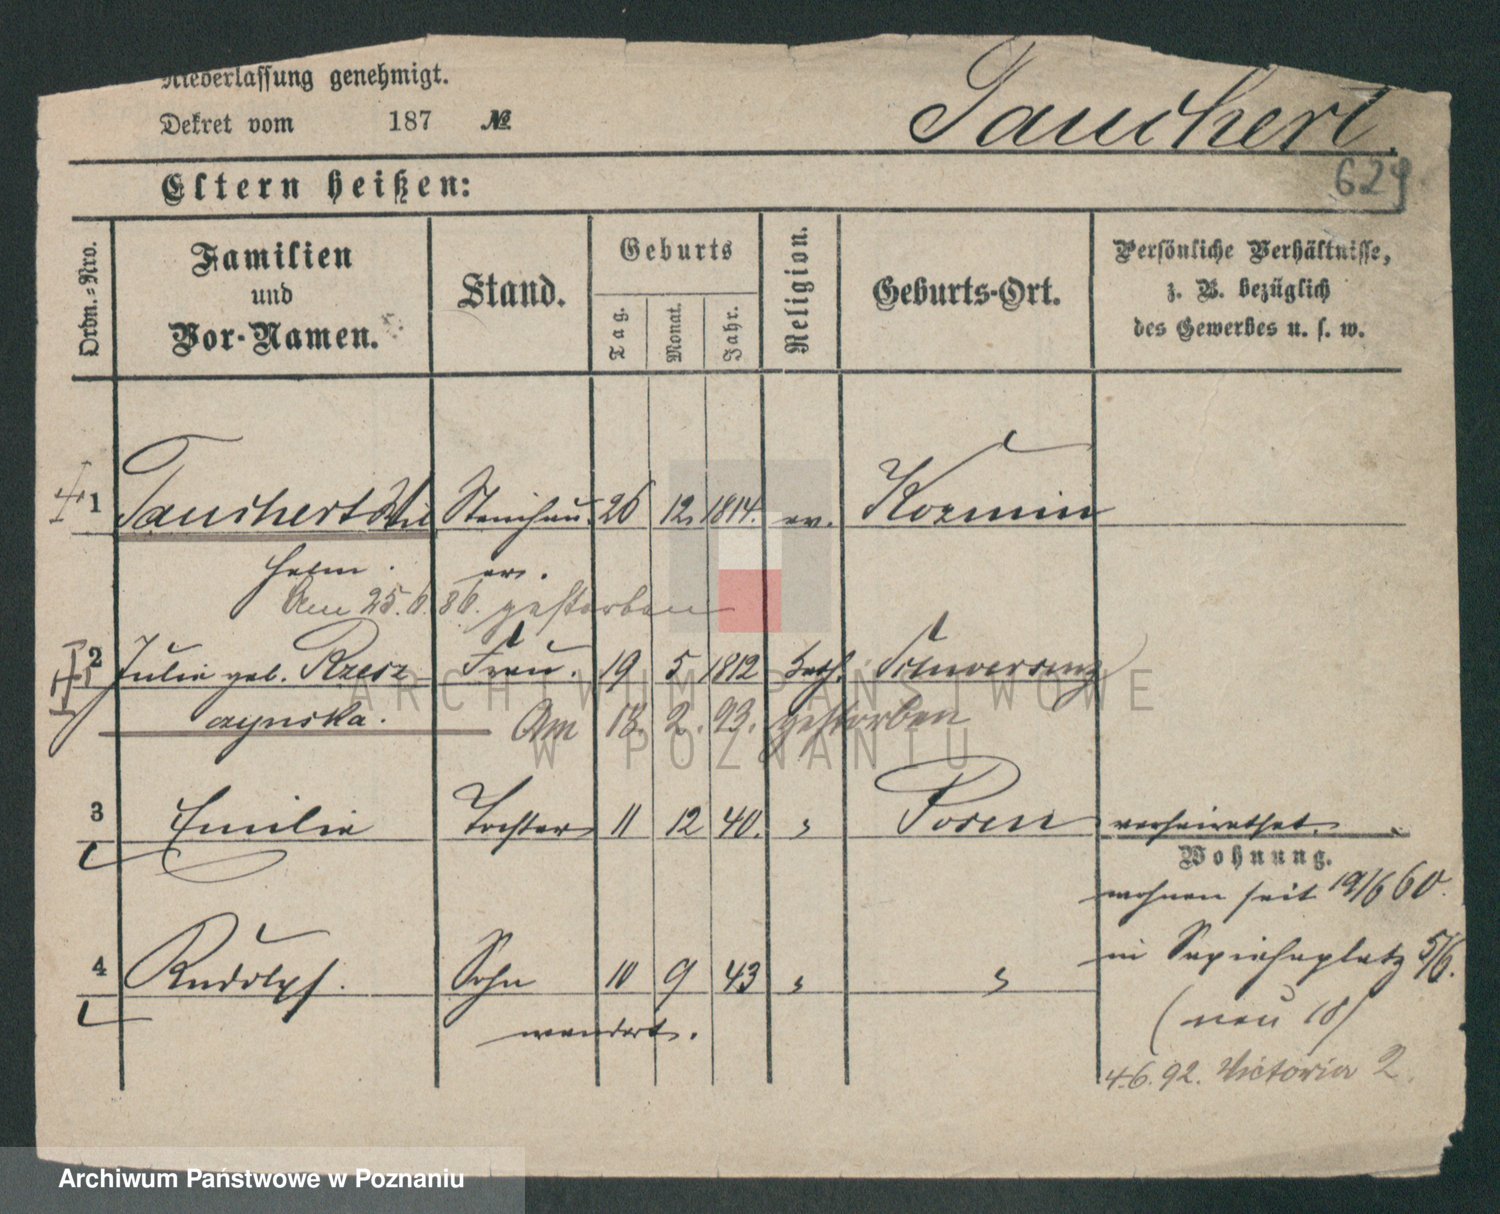 Niederlassung genehmigt.
Dekret vom 187 №
Tauchert.
629
Eltern heißen:
Ordn.-Nro.
Familien
und
Vor-Namen.
Stand.
Geburts
Tag.
Monat.
Jahr.
Religion.
Geburts-Ort.
Persönliche Verhältnisse,
z. B. bezüglich
des Gewerbes u. s. w.
1 Tauchert Wil 26 12. 1814. ev. Kozmin
helm.
Am 25. 6. 86. gestorben
2 Julie geb. Rzesz Frau. 19 5 1812 kath. Schwersenz
czynska.
Am 18. 2. 93. gestorben
3 Emilie Tochter 11 12 40. " Posen verheirathet.
Wohnung.
wohnen seit 19/6 60.
4 Rudolph. Sohn 10 9 43 " "
in Sapiehaplatz 5/6.
wandert.
(neu 18)
4.6.92. Victoria 2.
ARCHIWUM PAŃSTWOWE
W POZNANIU
Archiwum Państwowe w Poznaniu